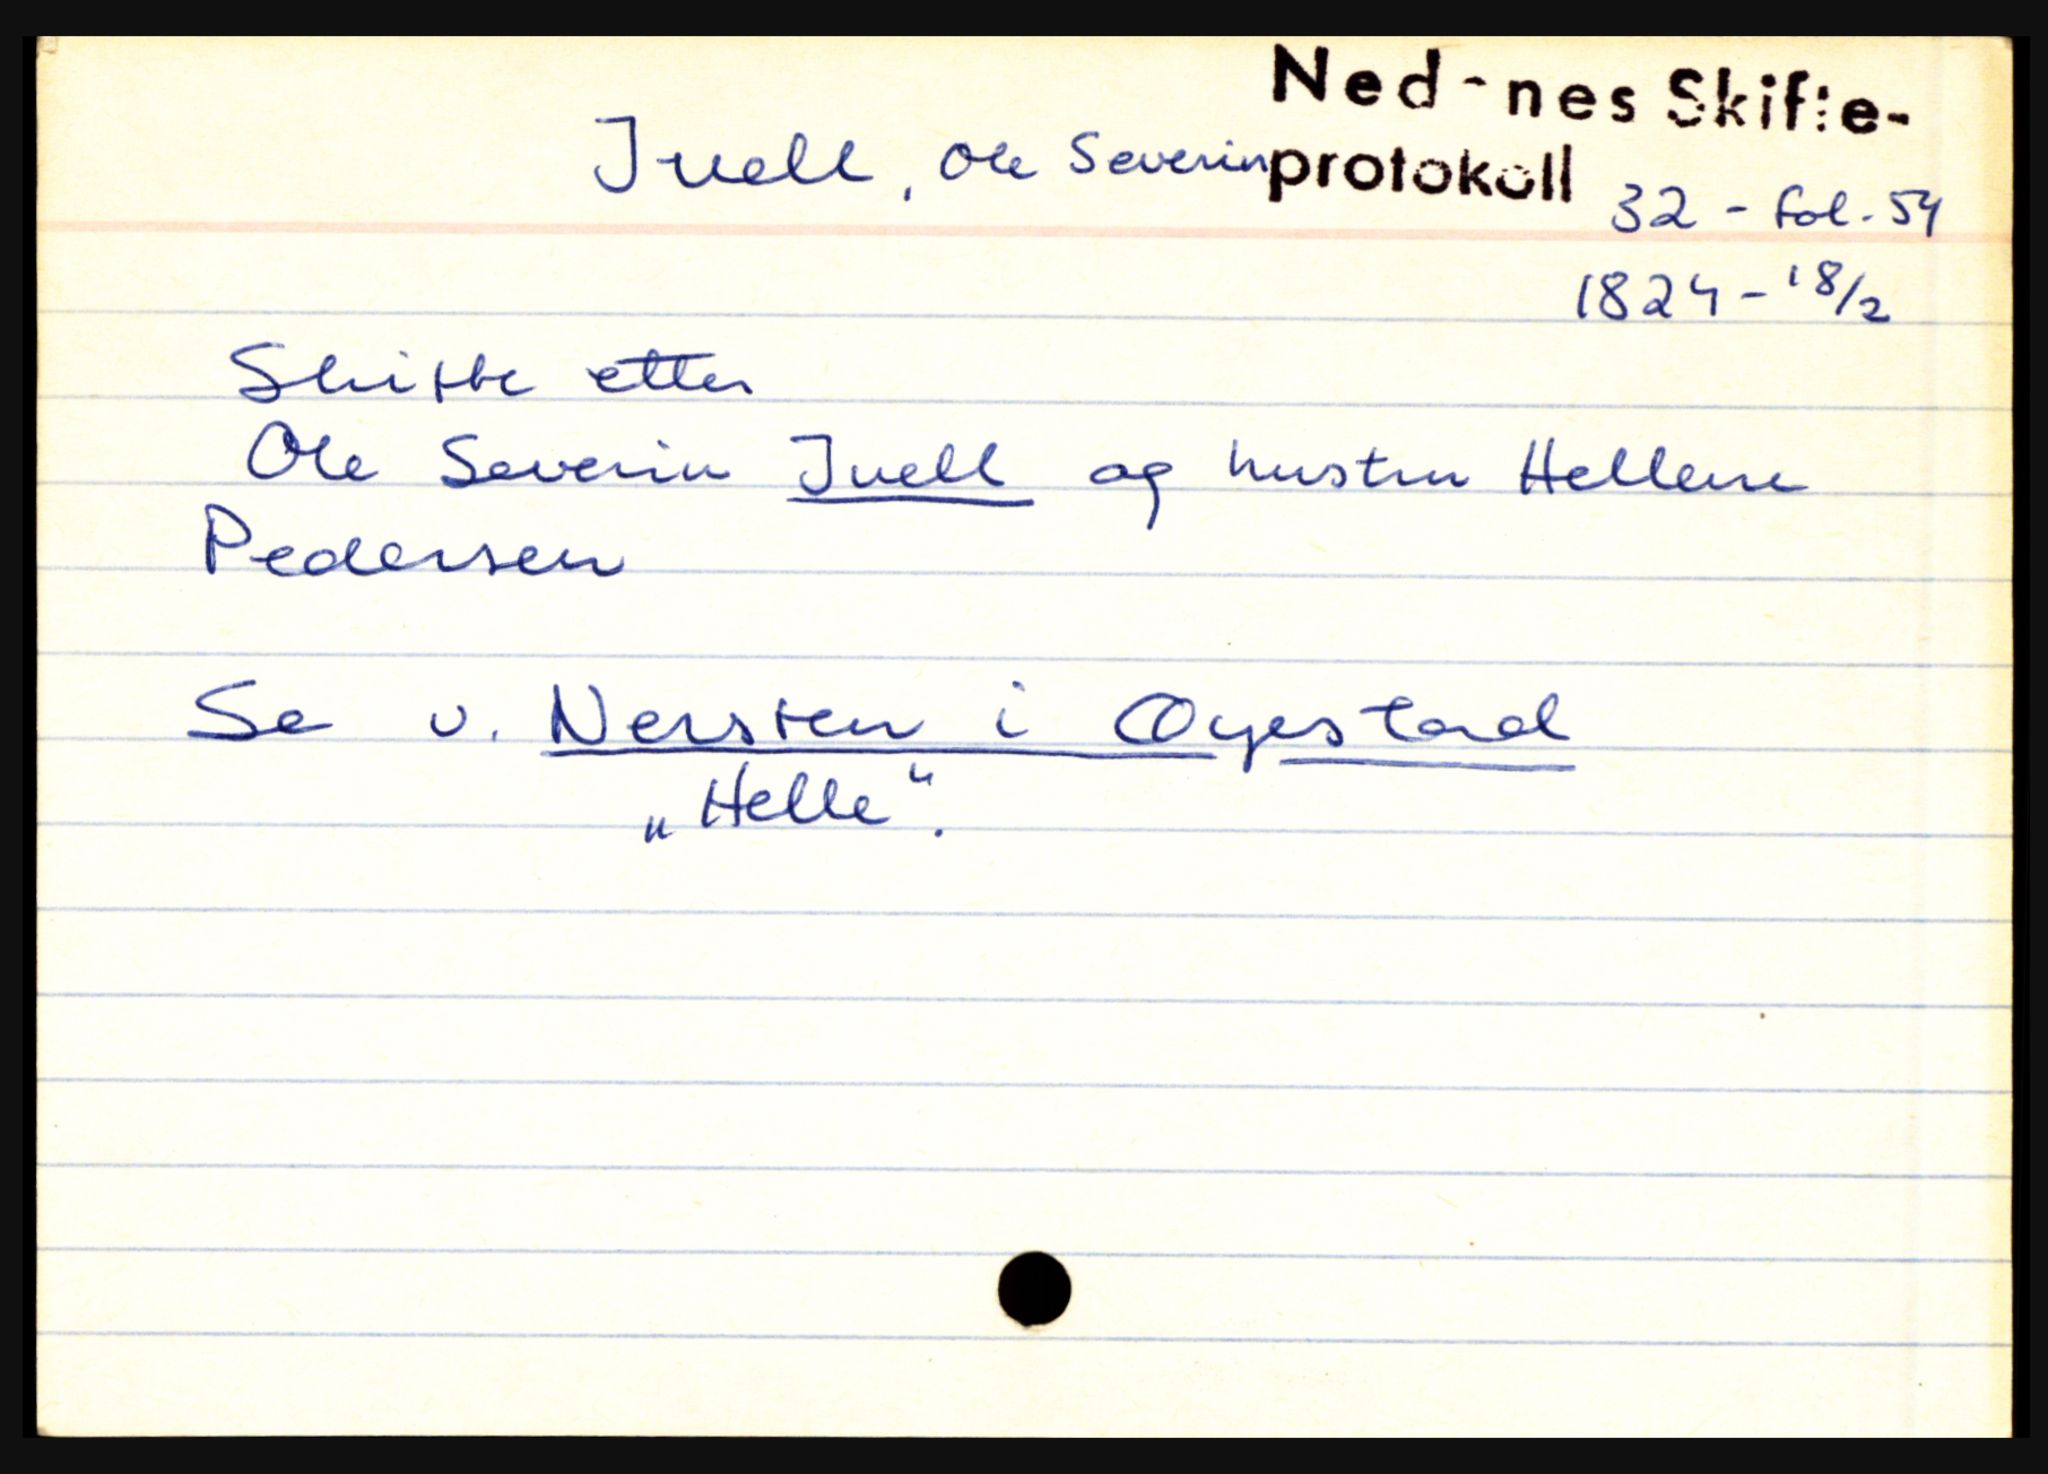 Ned-nes Skifte-
Juell, Ole Severin protokoll
32 - fol. 54
1824 - 18/2
Skifte etter
Ole Severin Juell og hustru Hellene
Pedersen
Se v. Nersten i Øyestad
„Helle“.